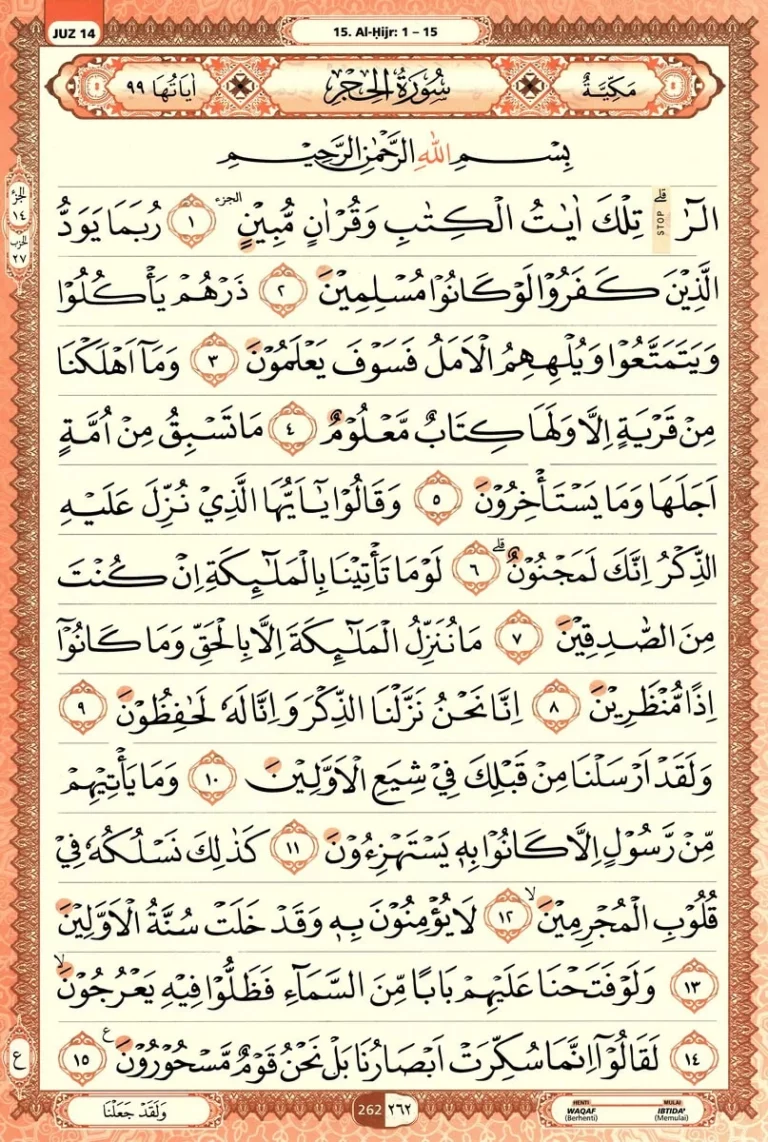 JUZ 14
15. Al-Ḥijr: 1 – 15
مَكِّيَّةٌ
سُوْرَةُ الْحِجْرِ
اٰيَاتُهَا ٩٩
بِسْمِ اللّٰهِ الرَّحْمٰنِ الرَّحِيْمِ
الۤرٰ ۗ تِلْكَ اٰيٰتُ الْكِتٰبِ وَقُرْاٰنٍ مُّبِيْنٍ ١ الجزء رُبَمَا يَوَدُّ
قلى STOP
الَّذِيْنَ كَفَرُوْا لَوْ كَانُوْا مُسْلِمِيْنَ ٢ ذَرْهُمْ يَأْكُلُوْا
وَيَتَمَتَّعُوْا وَيُلْهِهِمُ الْاَمَلُ فَسَوْفَ يَعْلَمُوْنَ ٣ وَمَآ اَهْلَكْنَا
مِنْ قَرْيَةٍ اِلَّا وَلَهَا كِتَابٌ مَّعْلُوْمٌ ٤ مَا تَسْبِقُ مِنْ اُمَّةٍ
اَجَلَهَا وَمَا يَسْتَأْخِرُوْنَ ٥ وَقَالُوْا يٰٓاَيُّهَا الَّذِيْ نُزِّلَ عَلَيْهِ
الذِّكْرُ اِنَّكَ لَمَجْنُوْنٌ ۗ ٦ لَوْمَا تَأْتِيْنَا بِالْمَلٰۤىِٕكَةِ اِنْ كُنْتَ
مِنَ الصّٰدِقِيْنَ ٧ مَا نُنَزِّلُ الْمَلٰۤىِٕكَةَ اِلَّا بِالْحَقِّ وَمَا كَانُوْٓا
اِذًا مُّنْظَرِيْنَ ٨ اِنَّا نَحْنُ نَزَّلْنَا الذِّكْرَ وَاِنَّا لَهٗ لَحٰفِظُوْنَ ٩
وَلَقَدْ اَرْسَلْنَا مِنْ قَبْلِكَ فِيْ شِيَعِ الْاَوَّلِيْنَ ١٠ وَمَا يَأْتِيْهِمْ
مِّنْ رَّسُوْلٍ اِلَّا كَانُوْا بِهٖ يَسْتَهْزِءُوْنَ ١١ كَذٰلِكَ نَسْلُكُهٗ فِيْ
قُلُوْبِ الْمُجْرِمِيْنَ ۙ ١٢ لَا يُؤْمِنُوْنَ بِهٖ وَقَدْ خَلَتْ سُنَّةُ الْاَوَّلِيْنَ
١٣ وَلَوْ فَتَحْنَا عَلَيْهِمْ بَابًا مِّنَ السَّمَاۤءِ فَظَلُّوْا فِيْهِ يَعْرُجُوْنَ ۙ
١٤ لَقَالُوْٓا اِنَّمَا سُكِّرَتْ اَبْصَارُنَا بَلْ نَحْنُ قَوْمٌ مَّسْحُوْرُوْنَ ࣖ ١٥
الجزء
١٤
الحزب
٢٧
ع
وَلَقَدْ جَعَلْنَا
262 ٢٦٢
HENTI
WAQAF
(Berhenti)
MULAI
IBTIDA'
(Memulai)